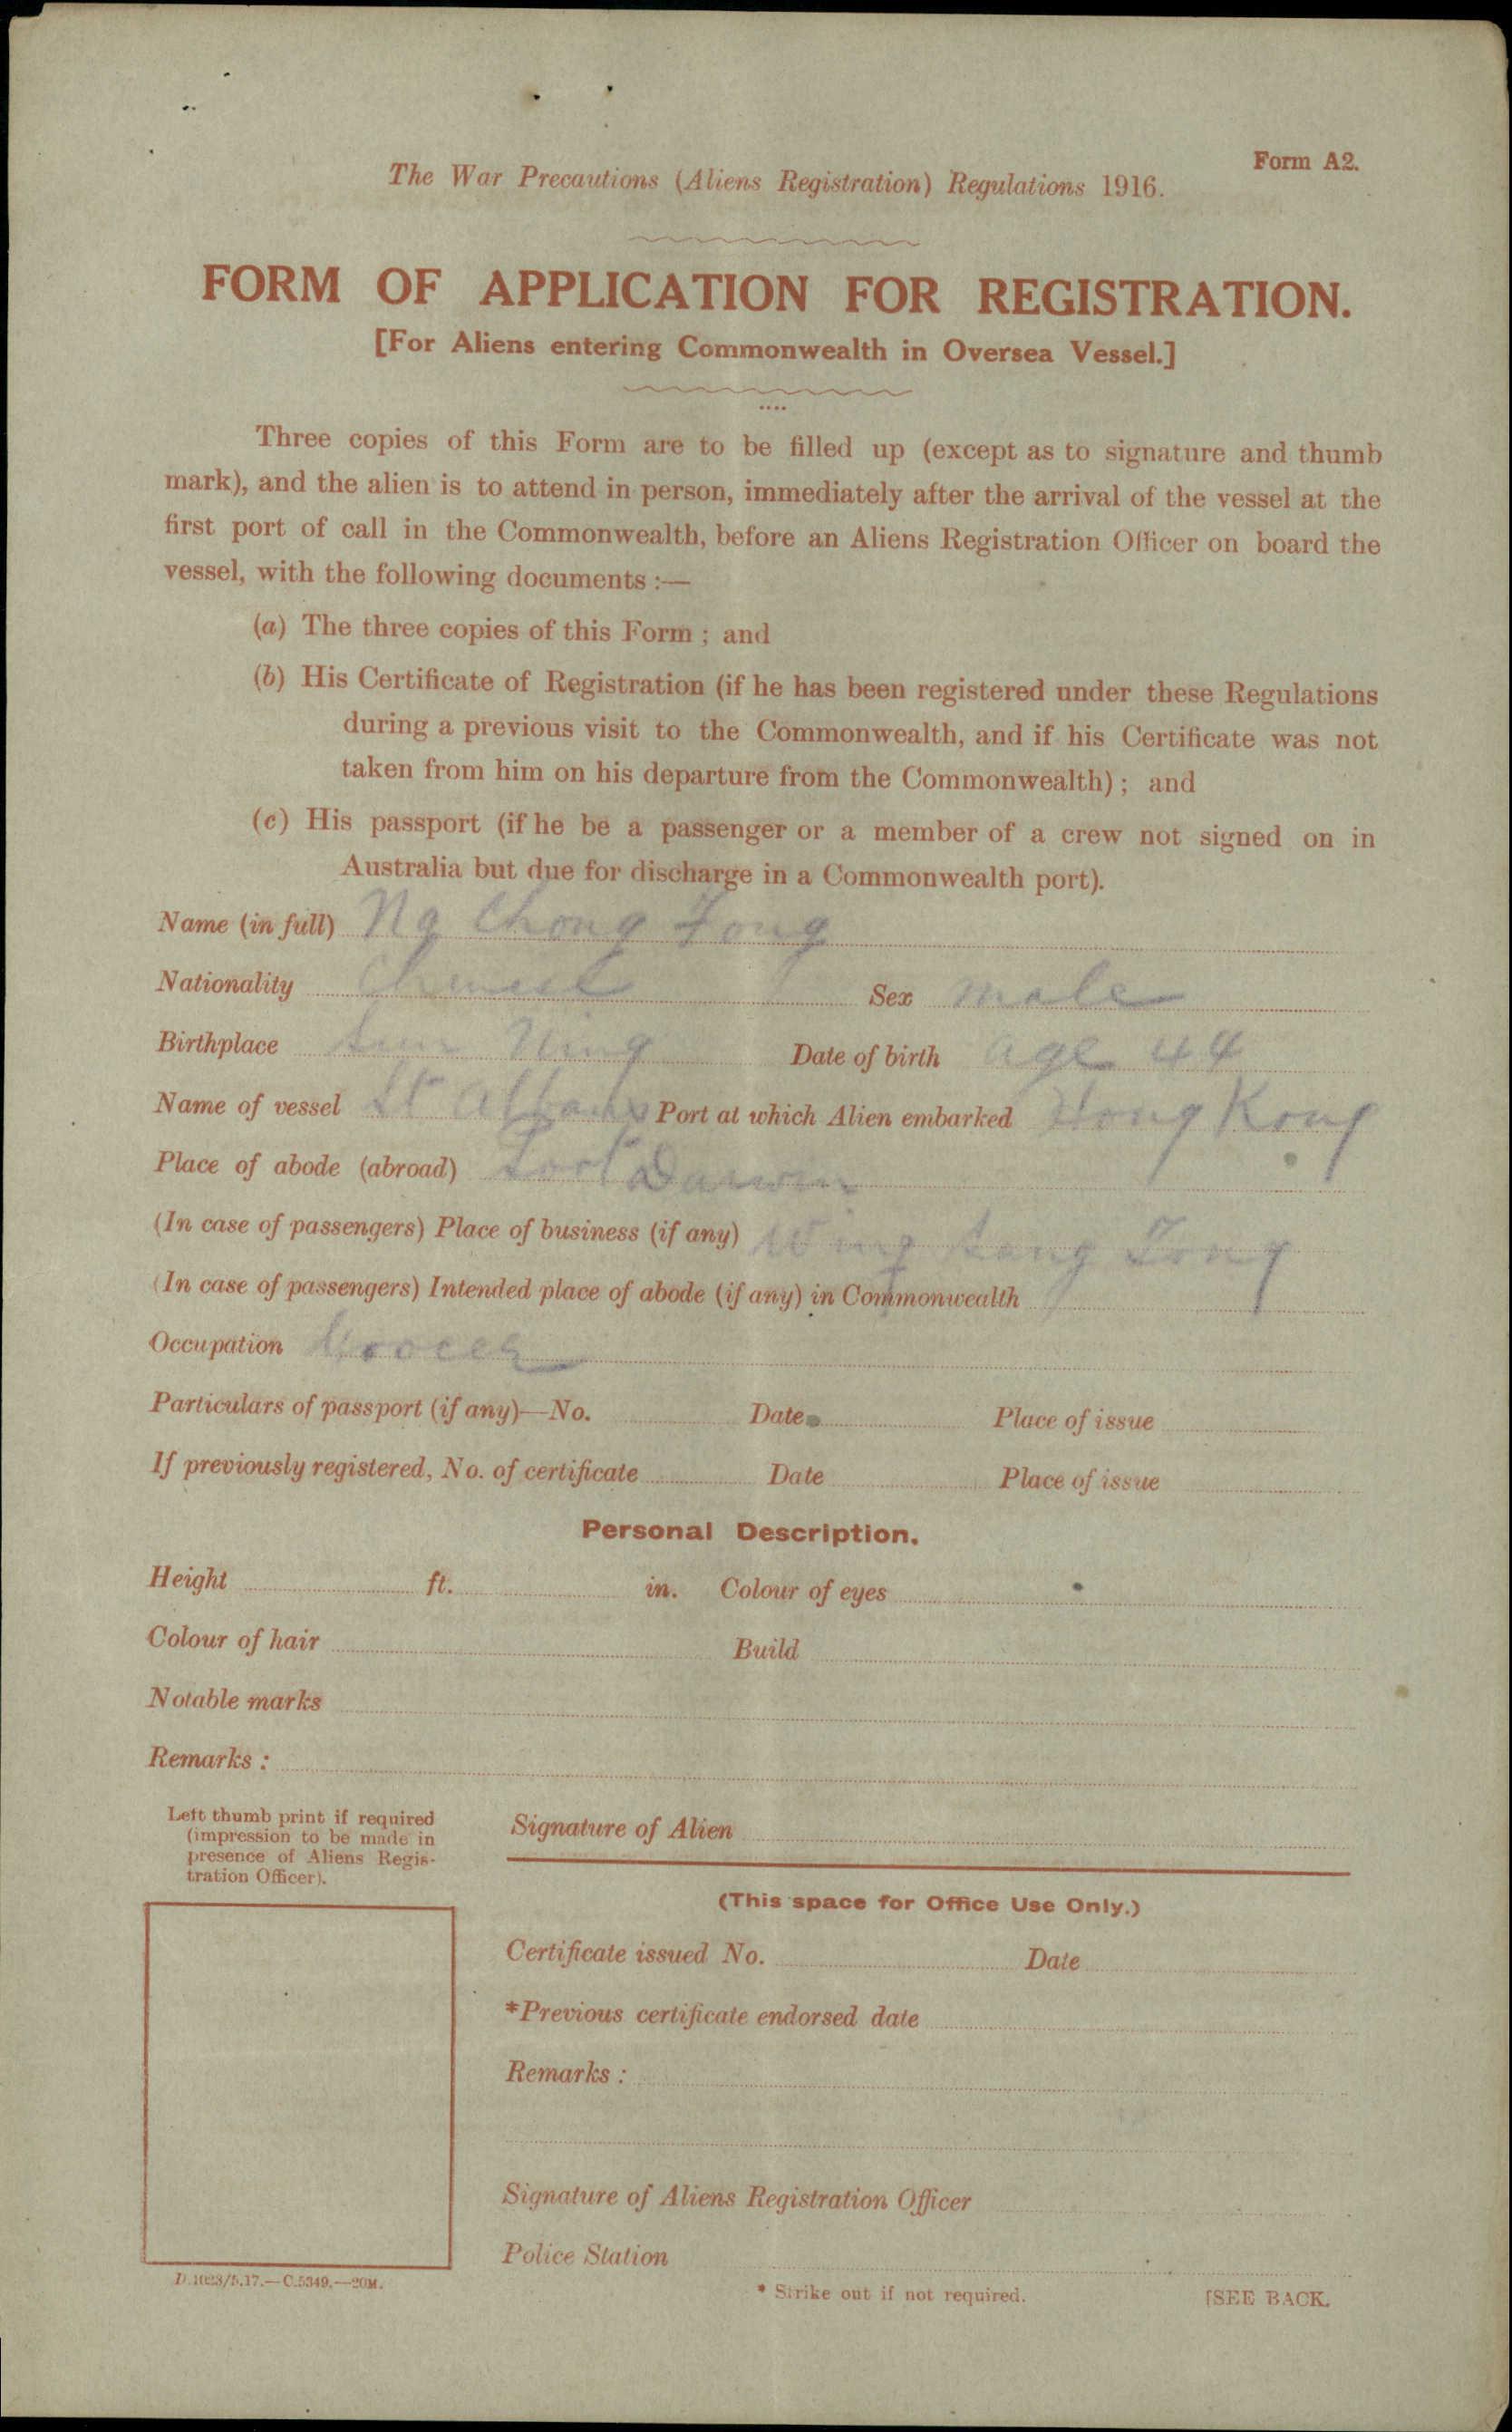 Form A2.
The War Precautions (Aliens Registration) Regulations 1916.
FORM OF APPLICATION FOR REGISTRATION.
[For Aliens entering Commonwealth in Oversea Vessel.]
Three copies of this Form are to be filled up (except as to signature and thumb
mark), and the alien is to attend in person, immediately after the arrival of the vessel at the
first port of call in the Commonwealth, before an Aliens Registration Officer on board the
vessel, with the following documents :—
(a) The three copies of this Form ; and
(b) His Certificate of Registration (if he has been registered under these Regulations
during a previous visit to the Commonwealth, and if his Certificate was not
taken from him on his departure from the Commonwealth) ; and
(c) His passport (if he be a passenger or a member of a crew not signed on in
Australia but due for discharge in a Commonwealth port).
Name (in full) Ng Chong Fong
Nationality Chinese Sex male
Birthplace Sun Ning Date of birth age 44
Name of vessel St Albans Port at which Alien embarked Hong Kong
Place of abode (abroad) Port Darwin
(In case of passengers) Place of business (if any) Wing Sang Tong
(In case of passengers) Intended place of abode (if any) in Commonwealth
Occupation Grocer
Particulars of passport (if any)—No. Date Place of issue
If previously registered, No. of certificate Date Place of issue
Personal Description.
Height ft. in. Colour of eyes
Colour of hair Build
Notable marks
Remarks :
Left thumb print if required
(impression to be made in
presence of Aliens Regis-
tration Officer).
Signature of Alien
(This space for Office Use Only.)
Certificate issued No. Date
*Previous certificate endorsed date
Remarks :
Signature of Aliens Registration Officer
Police Station
D.1023/5.17.—C.5349.—20M.
* Strike out if not required.
[SEE BACK.